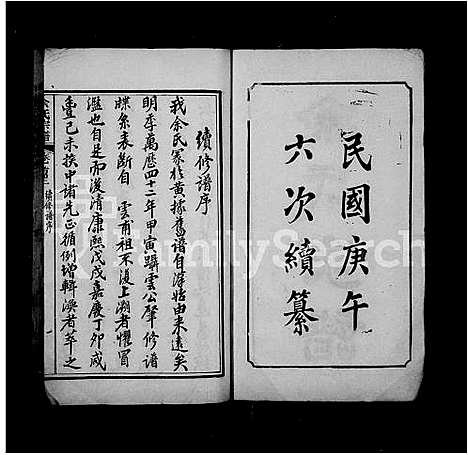 民國庚午
六次續纂
續修譜序
我余氏冢於黃據舊譜自
由來遠矣
明季萬曆四十二年甲寅躡雲公肇修譜
牒系表斷自 雲甫祖不復上溯者懼冒
濫也自是而後清康熙戊戌嘉慶丁卯咸
豐己未挨中諸先正循例增輯渙者萃之
余氏宗譜
續修譜序
FamilySearch